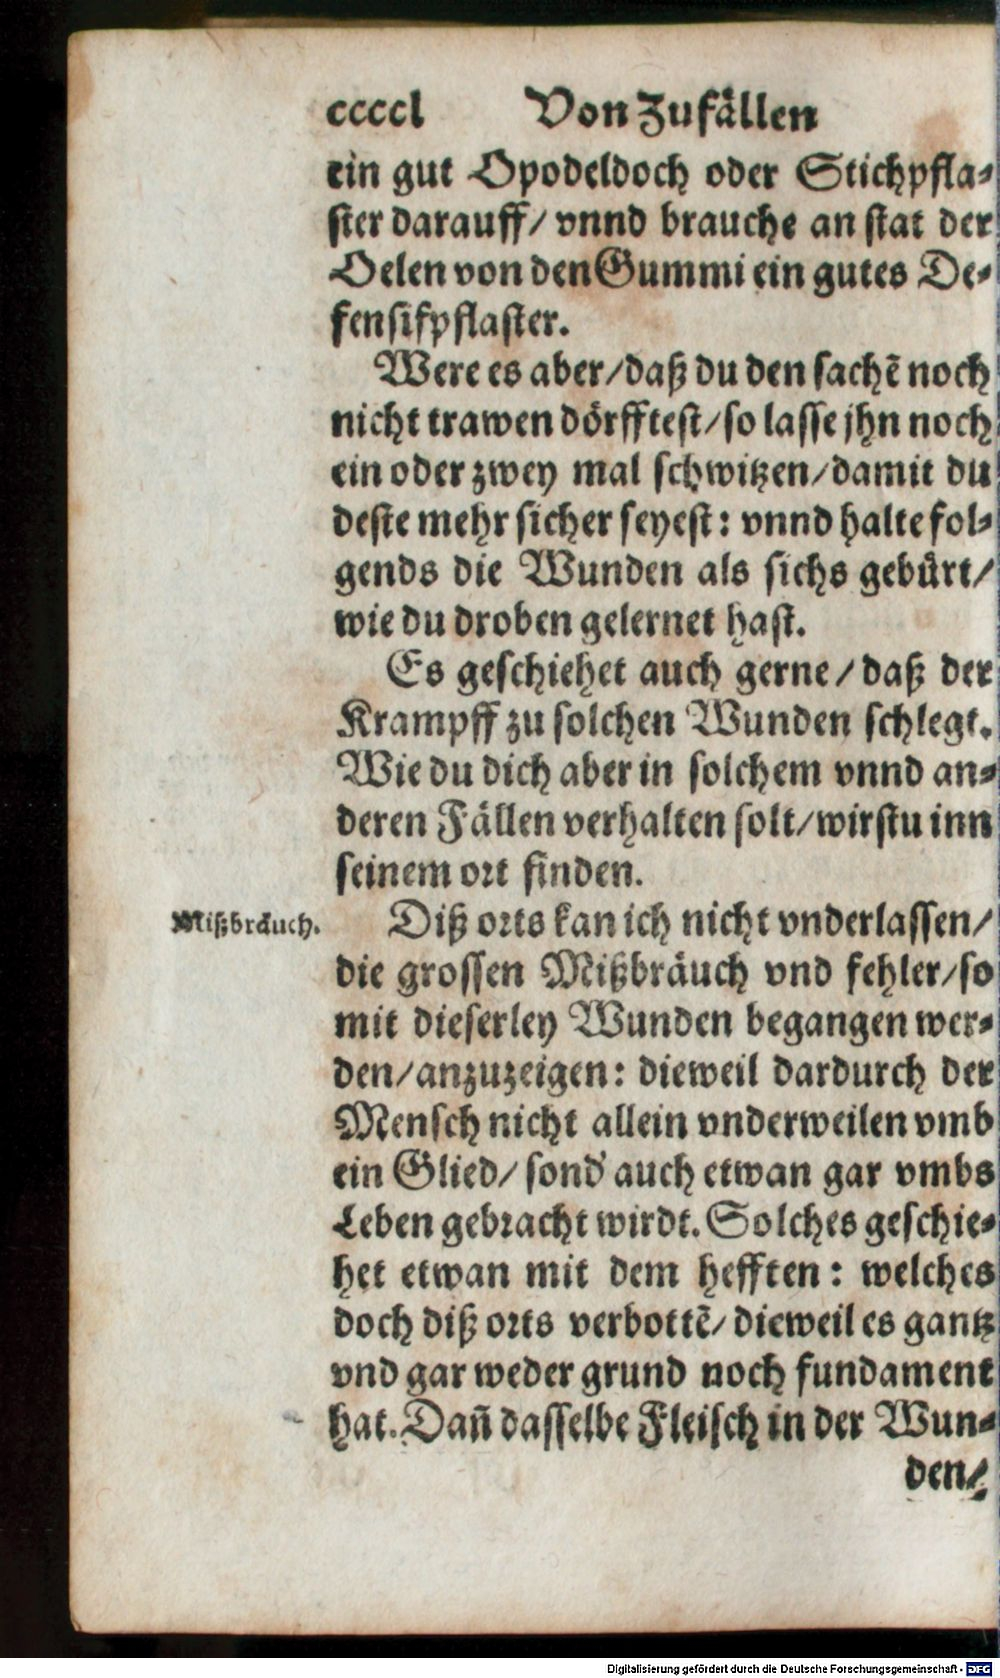 ccccl Von Zufällen
ein gut Opodeldoch oder Stichpfla-
ster darauff/ vnnd brauche an stat der
Oelen von den Gummi ein gutes De-
fensifpflaster.
Were es aber/ daß du den sachẽ noch
nicht trawen dörfftest/ so lasse jhn noch
ein oder zwey mal schwitzen/ damit du
deste mehr sicher seyest: vnnd halte fol-
gends die Wunden als sichs gebürt/
wie du droben gelernet hast.
Es geschiehet auch gerne/ daß der
Krampff zu solchen Wunden schlegt.
Wie du dich aber in solchem vnnd an-
deren Fällen verhalten solt/ wirstu inn
seinem ort finden.
Mißbräuch.
Diß orts kan ich nicht vnderlassen/
die grossen Mißbräuch vnd fehler/ so
mit dieserley Wunden begangen wer-
den/ anzuzeigen: dieweil dardurch der
Mensch nicht allein vnderweilen vmb
ein Glied/ sond' auch etwan gar vmbs
Leben gebracht wirdt. Solches geschie-
het etwan mit dem hefften: welches
doch diß orts verbottẽ/ dieweil es gantz
vnd gar weder grund noch fundament
hat. Dañ dasselbe Fleisch in der Wun-
den/
Digitalisierung gefördert durch die Deutsche Forschungsgemeinschaft - DFG